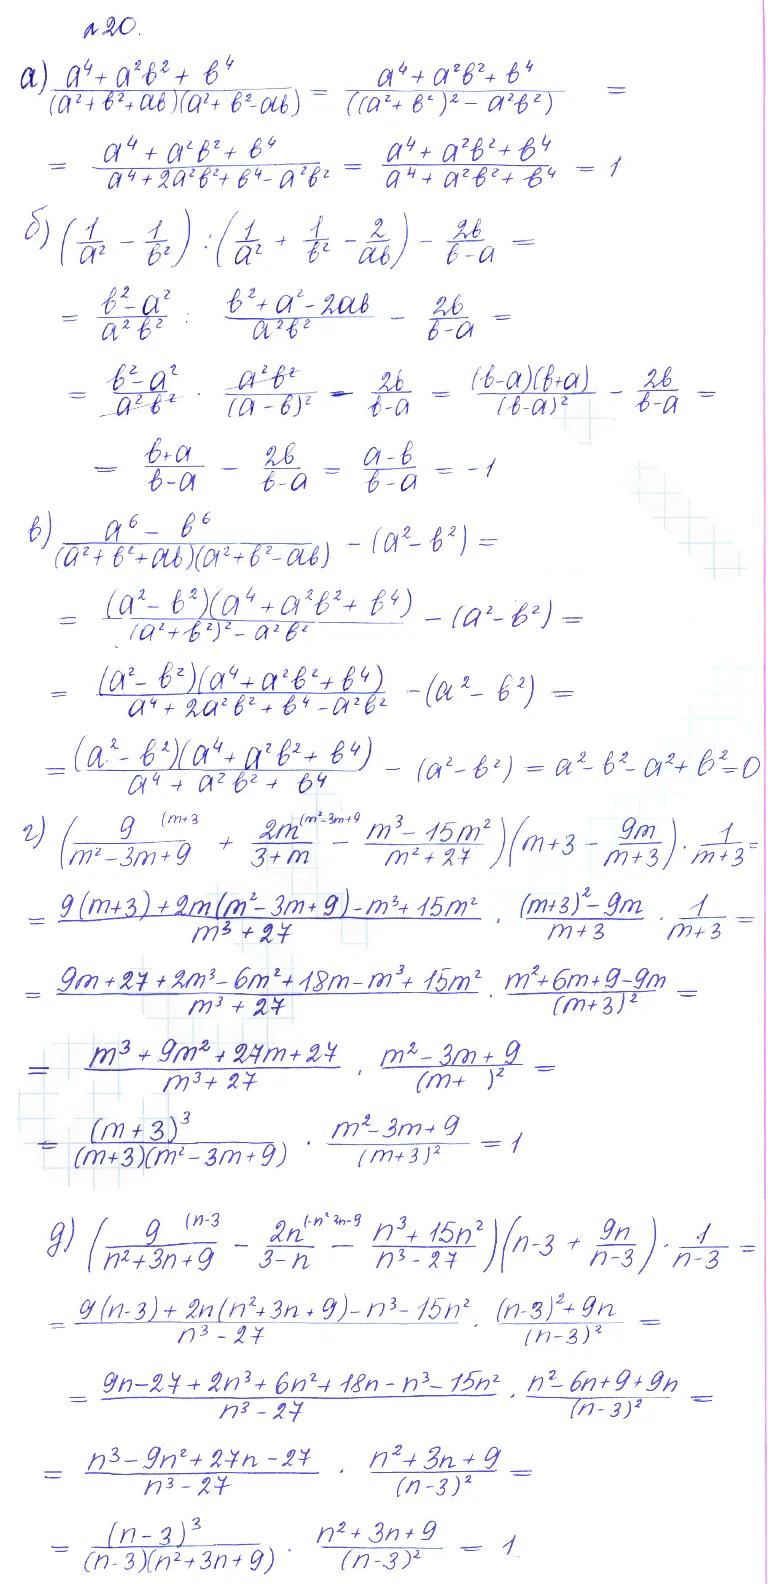 №20.
а) (a⁴ + a²b² + b⁴)/((a² + b² + ab)(a² + b² - ab)) = (a⁴ + a²b² + b⁴)/((a² + b²)² - a²b²) =
= (a⁴ + a²b² + b⁴)/(a⁴ + 2a²b² + b⁴ - a²b²) = (a⁴ + a²b² + b⁴)/(a⁴ + a²b² + b⁴) = 1
б) (1/a² - 1/b²) : (1/a² + 1/b² - 2/ab) - 2b/(b-a) =
= (b² - a²)/(a²b²) : (b² + a² - 2ab)/(a²b²) - 2b/(b-a) =
= (b² - a²)/(a²b²) · (a²b²)/(a-b)² - 2b/(b-a) = ((b-a)(b+a))/(b-a)² - 2b/(b-a) =
= (b+a)/(b-a) - 2b/(b-a) = (a-b)/(b-a) = -1
в) (a⁶ - b⁶)/((a² + b² + ab)(a² + b² - ab)) - (a² - b²) =
= ((a² - b²)(a⁴ + a²b² + b⁴))/((a² + b²)² - a²b²) - (a² - b²) =
= ((a² - b²)(a⁴ + a²b² + b⁴))/(a⁴ + 2a²b² + b⁴ - a²b²) - (a² - b²) =
= ((a² - b²)(a⁴ + a²b² + b⁴))/(a⁴ + a²b² + b⁴) - (a² - b²) = a² - b² - a² + b² = 0
г) (9 (m+3/(m² - 3m + 9) + 2m (m²-3m+9/(3+m) - (m³ - 15m²)/(m² + 27))(m+3 - 9m/(m+3)) · 1/(m+3) =
= (9(m+3) + 2m(m² - 3m + 9) - m³ + 15m²)/(m³ + 27) · ((m+3)² - 9m)/(m+3) · 1/(m+3) =
= (9m + 27 + 2m³ - 6m² + 18m - m³ + 15m²)/(m³ + 27) · (m² + 6m + 9 - 9m)/(m+3)² =
= (m³ + 9m² + 27m + 27)/(m³ + 27) · (m² - 3m + 9)/(m+ )² =
= (m+3)³/((m+3)(m² - 3m + 9)) · (m² - 3m + 9)/(m+3)² = 1
д) (9 (n-3/(n² + 3n + 9) - 2n (-n² 3n-9/(3-n) - (n³ + 15n²)/(n³ - 27))(n-3 + 9n/(n-3)) · 1/(n-3) =
= (9(n-3) + 2n(n² + 3n + 9) - n³ - 15n²)/(n³ - 27) · ((n-3)² + 9n)/(n-3)² =
= (9n - 27 + 2n³ + 6n² + 18n - n³ - 15n²)/(n³ - 27) · (n² - 6n + 9 + 9n)/(n-3)² =
= (n³ - 9n² + 27n - 27)/(n³ - 27) · (n² + 3n + 9)/(n-3)² =
= (n-3)³/((n-3)(n² + 3n + 9)) · (n² + 3n + 9)/(n-3)² = 1.